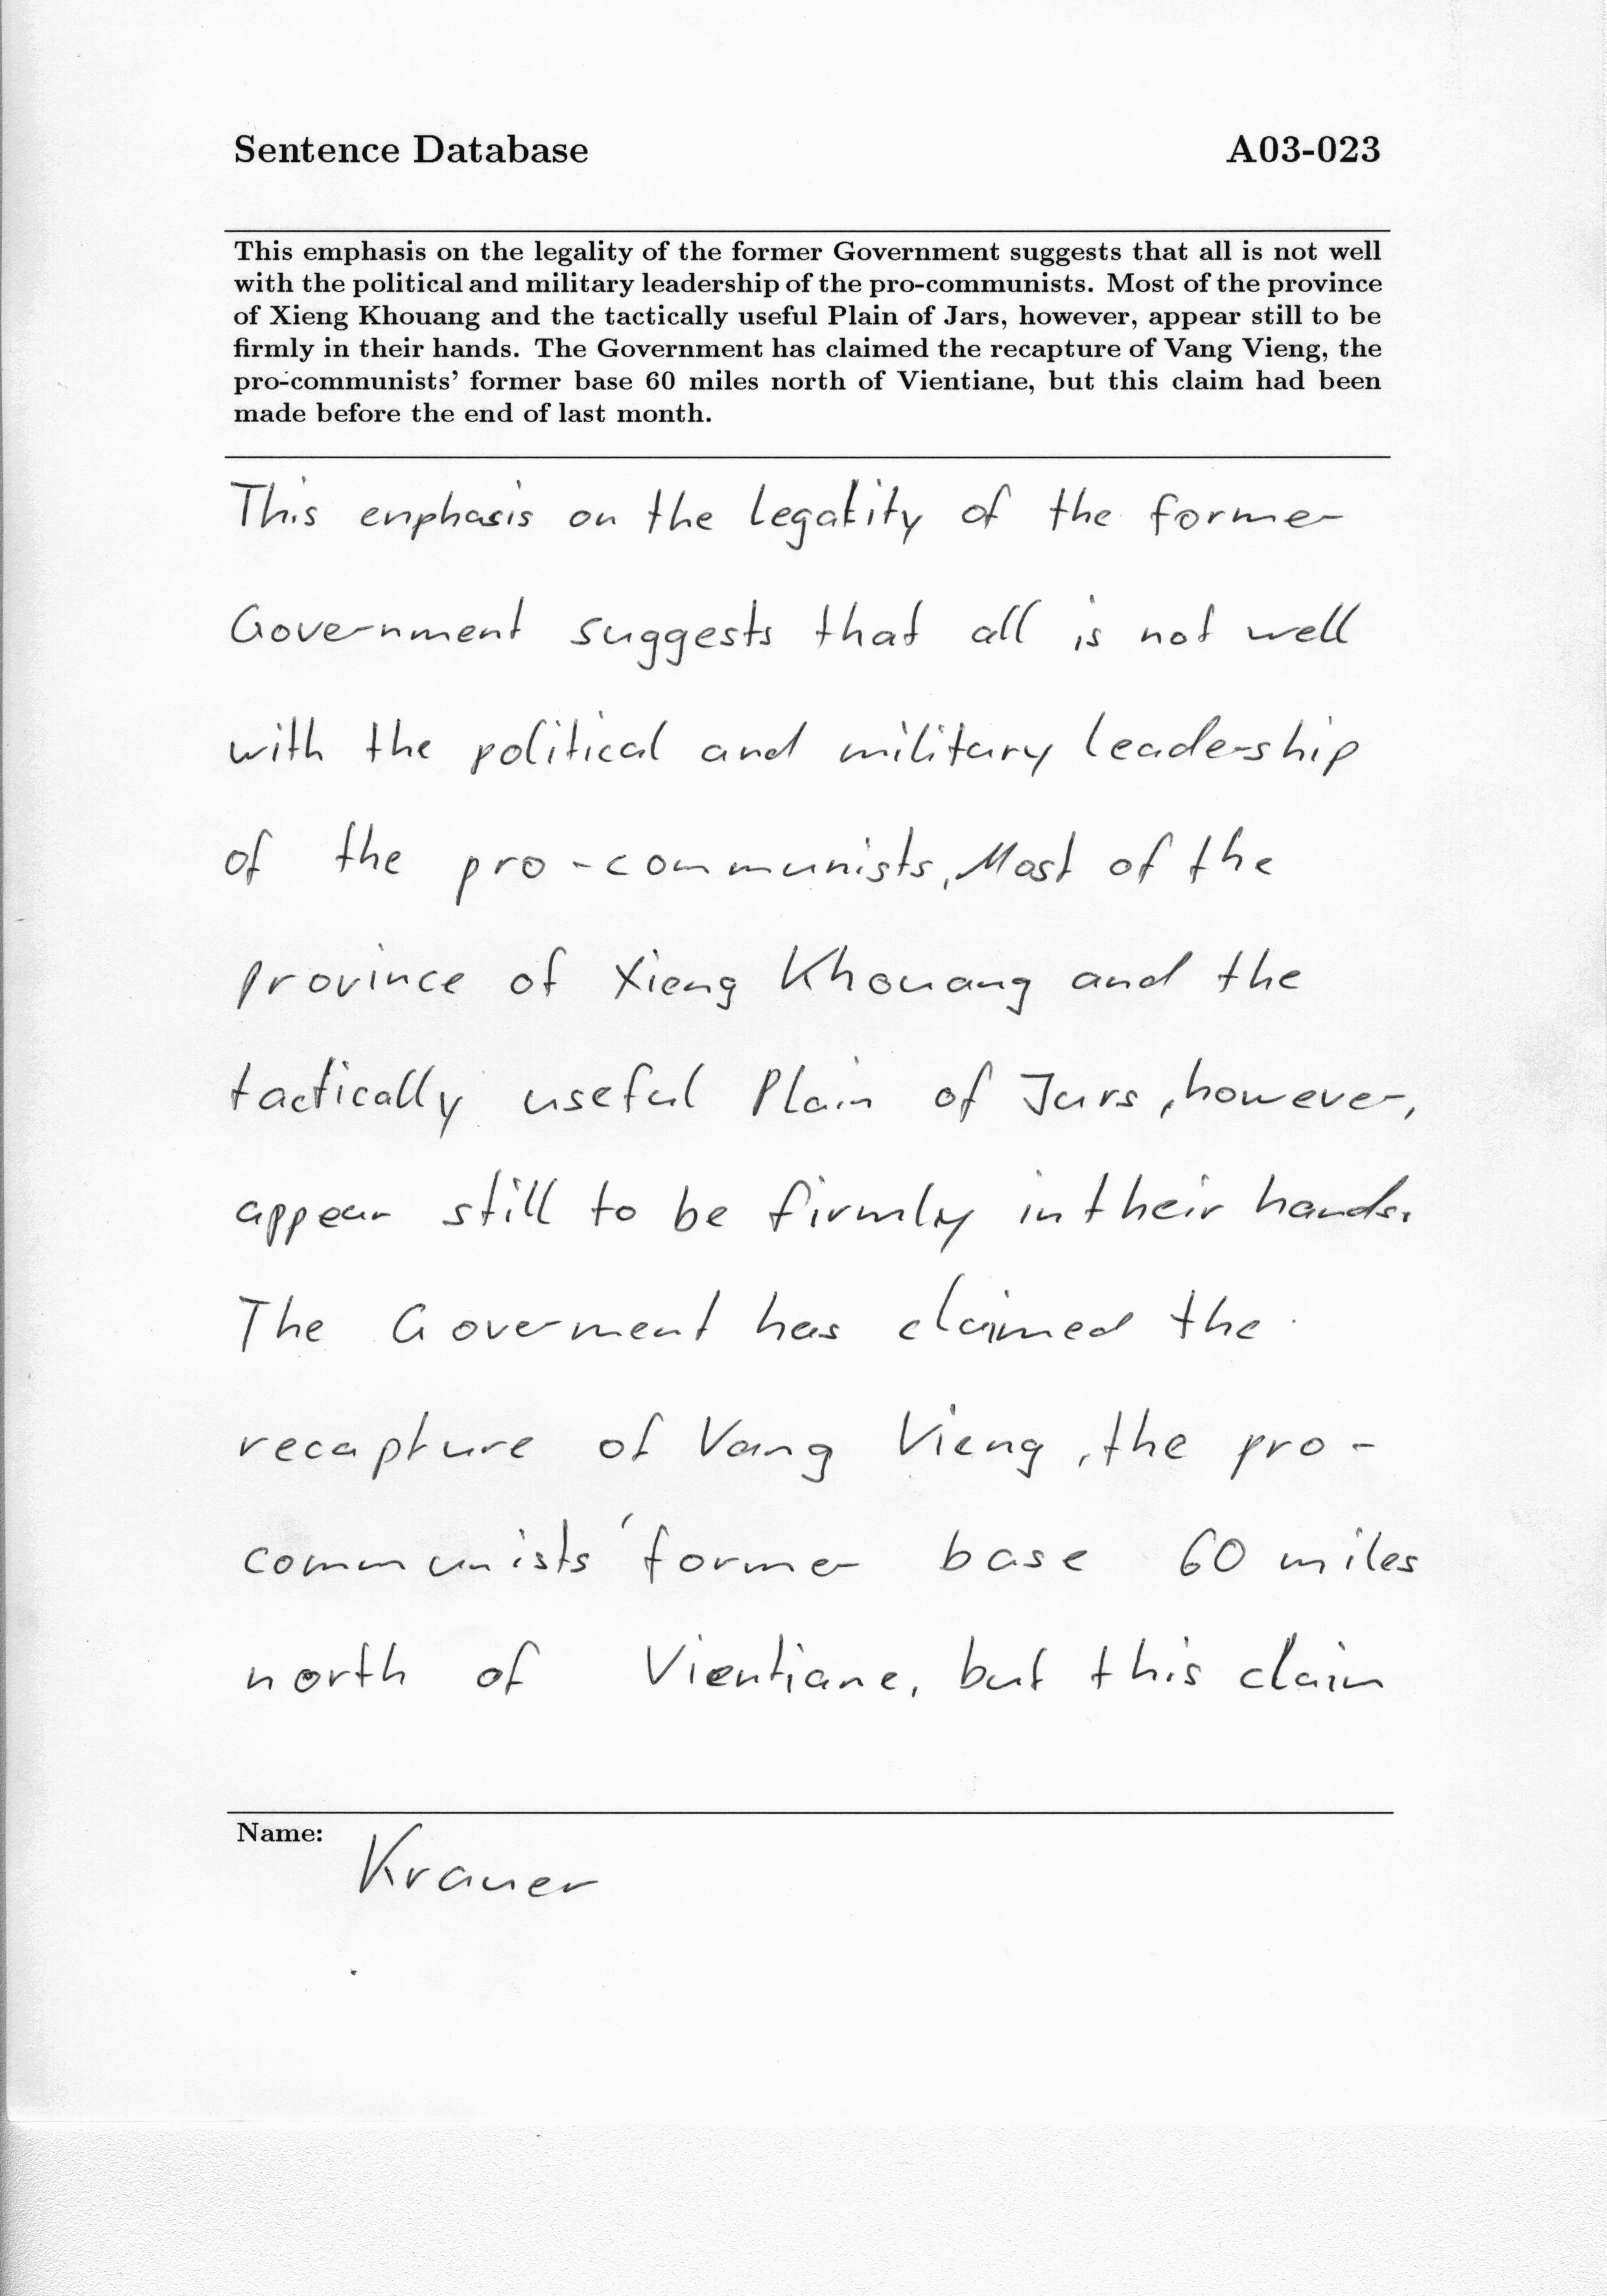 Sentence Database A03-023
This emphasis on the legality of the former Government suggests that all is not well
with the political and military leadership of the pro-communists. Most of the province
of Xieng Khouang and the tactically useful Plain of Jars, however, appear still to be
firmly in their hands. The Government has claimed the recapture of Vang Vieng, the
pro-communists' former base 60 miles north of Vientiane, but this claim had been
made before the end of last month.
This emphasis on the legality of the former
Government suggests that all is not well
with the political and military leadership
of the pro-communists, Most of the
province of Xieng Khouang and the
tactically useful Plain of Jars, however,
appear still to be firmly in their hands.
The Goverment has claimed the
recapture of Vang Vieng, the pro-
communists' former base 60 miles
north of Vientiane, but this claim
Name:
Krauer